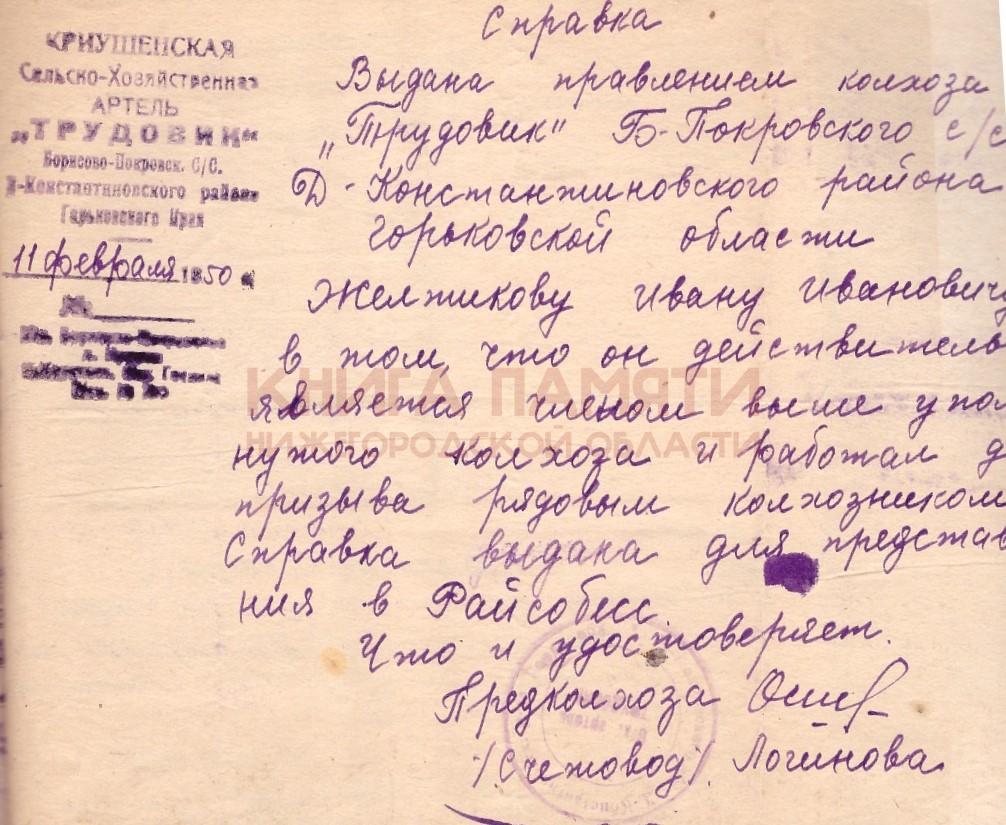 КРИУШЕНСКАЯ
Сельско-Хозяйственная
АРТЕЛЬ
„ТРУДОВИК“
Борисово-Покровск. С/С.
Д-Константиновского района
Горьковского Края
11 февраля 1950 г.
№
Справка
Выдана правлением колхоза
„Трудовик" Б-Покровского с/с
Д-Константиновского района
Горьковской области
Желтикову Ивану Иванович
в том, что он действитель
является членом выше упом
нутого колхоза и работал д
призыва рядовым колхозником
Справка выдана для представ
ния в Райсобесс.
Что и удостоверяет.
Предколхоза
/Счетовод/. Логинова
КНИГА ПАМЯТИ
НИЖЕГОРОДСКОЙ ОБЛАСТИ